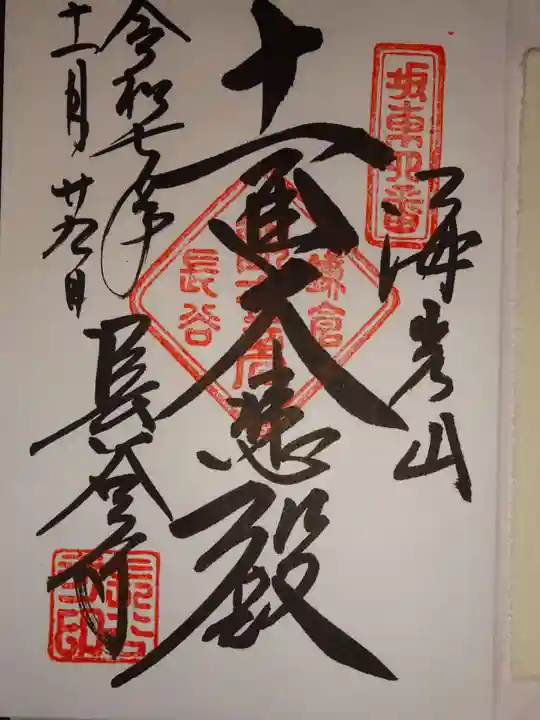 坂東四番
海光山
十一面大悲殿
鎌倉
長谷
令和七年
十一月廿九日
長谷寺